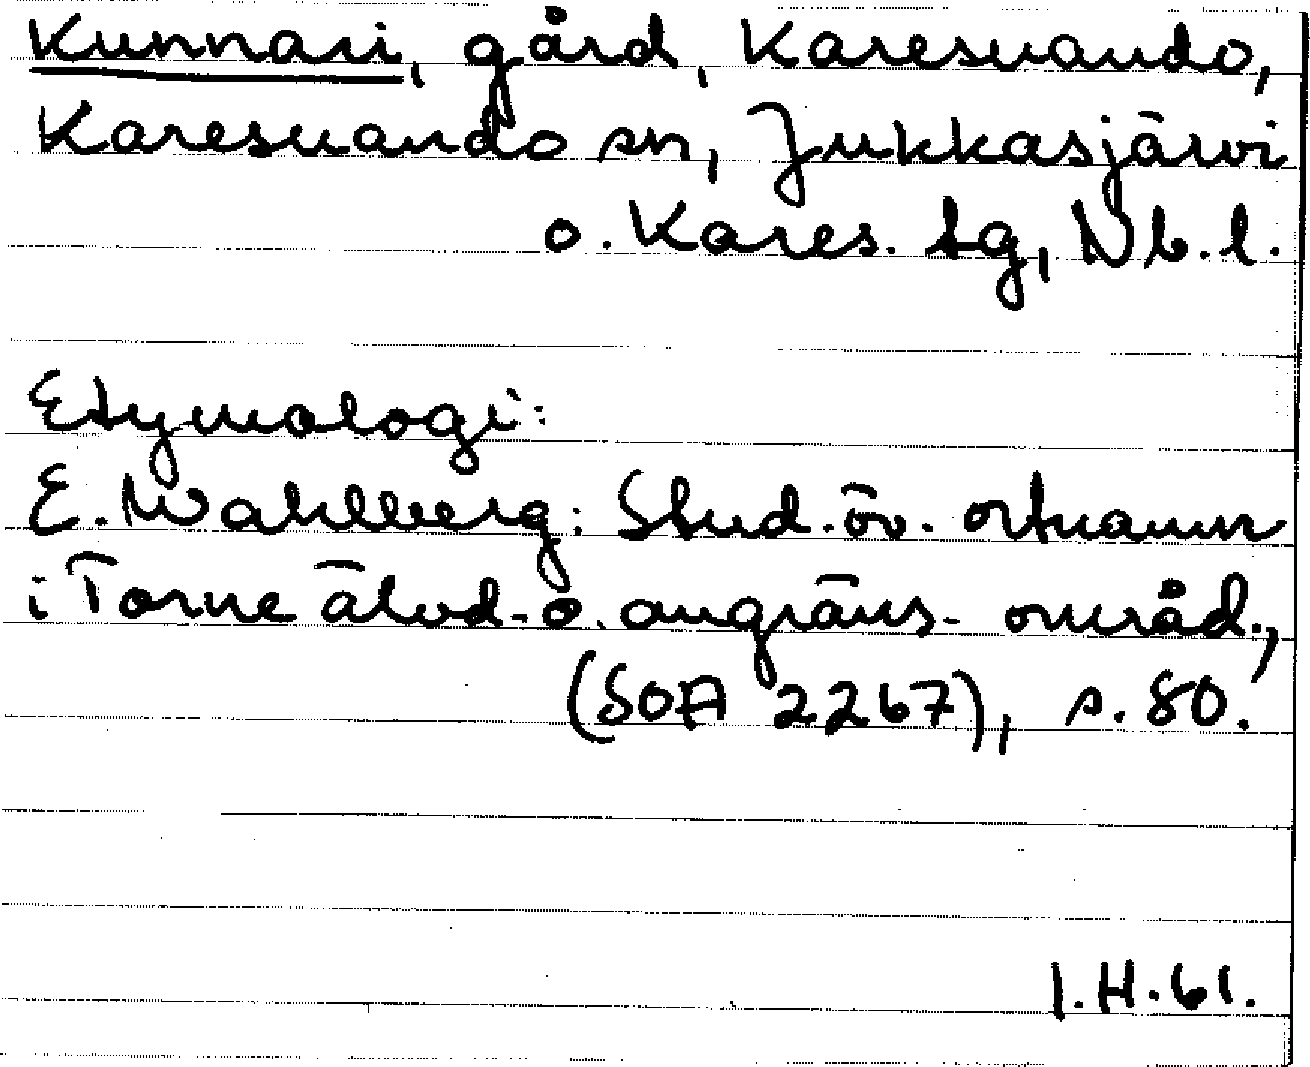 Kunnari, gård, Karesuando,
Karesuando sn, Jukkasjärvi
o. Kares. tg, Nb. l.
Etymologi:
E. Wahlberg: Stud. öv. ortnamn
i Torne älvd. o. angräns. områd.,
(SOA 2267), s. 80.
I.H.61.